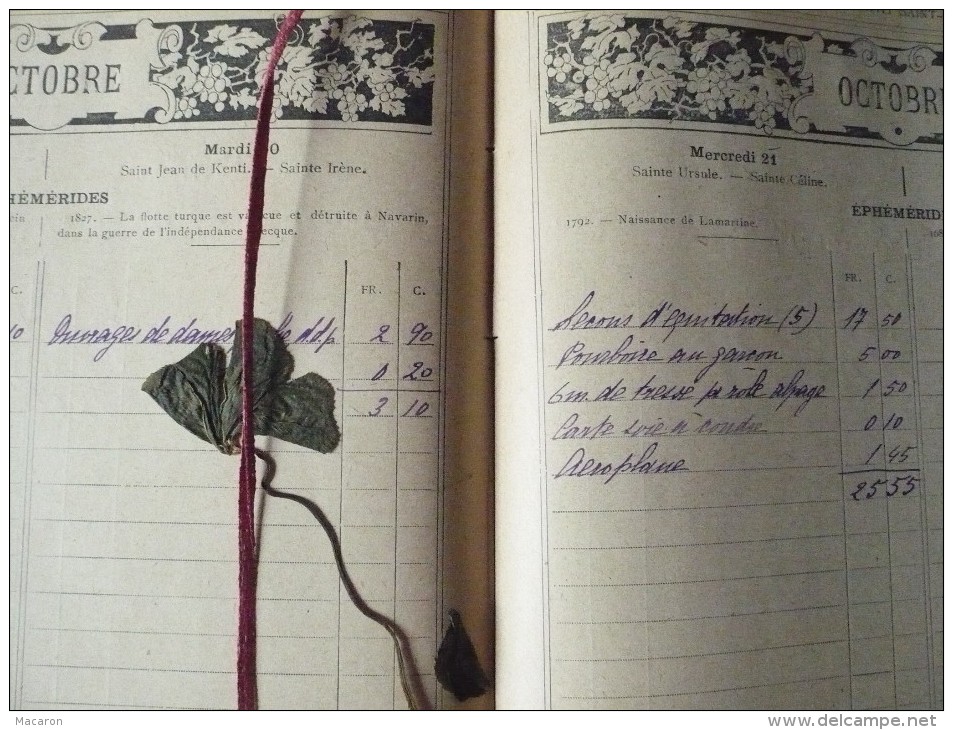 OCTOBRE
Mardi 20
Saint Jean de Kenti. — Sainte Irène.
HÉMÉRIDES
1827. — La flotte turque est vaincue et détruite à Navarin,
dans la guerre de l'indépendance grecque.
C. FR. C.
10 Ouvrages de dames 2 90
0 20
3 10
OCTOBRE
Mercredi 21
Sainte Ursule. — Sainte Céline.
ÉPHÉMÉRID
1792. — Naissance de Lamartine.
FR. C.
Leçons d'équitation (5) 17 50
Pourboire au garçon 5 00
6 m. de tresse pr alpaga 1 50
Carte soie à coudre 0 10
Aeroplane 1 45
25 55
Macaron
www.delcampe.net